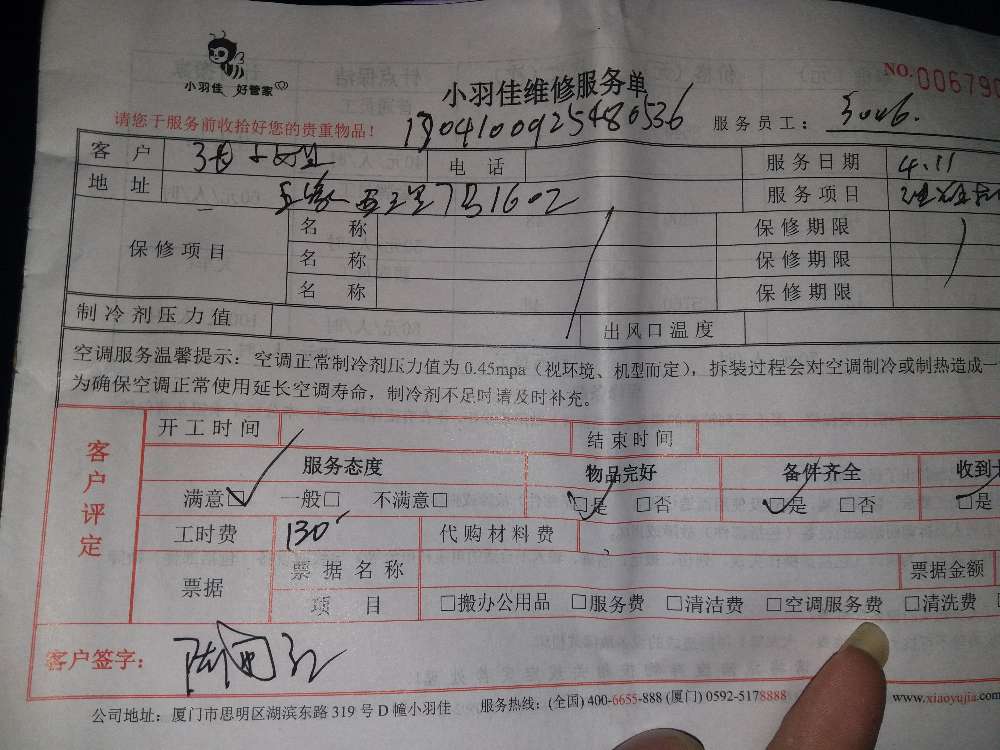 小羽佳 好管家
小羽佳维修服务单
NO.006790
请您于服务前收拾好您的贵重物品！
服务员工：3006.
客 户 电 话 服务日期 4.11
地 址 7号1602 服务项目
保修项目 名 称 保修期限
名 称 保修期限
名 称 保修期限
制冷剂压力值 出风口温度
空调服务温馨提示：空调正常制冷剂压力值为 0.45mpa（视环境、机型而定），拆装过程会对空调制冷或制热造成一
为确保空调正常使用延长空调寿命，制冷剂不足时请及时补充。
客户评定
开工时间 结束时间
服务态度 物品完好 备件齐全 收到
满意□ 一般□ 不满意□ □是 □否 □是 □否 □是
工时费 130 代购材料费
票据 票据名称 票据金额
项 目 □搬办公用品 □服务费 □清洁费 □空调服务费 □清洗费
客户签字：
公司地址：厦门市思明区湖滨东路 319 号 D 幢小羽佳 服务热线：(全国) 400-6655-888 (厦门) 0592-5178888 www.xiaoyujia.com